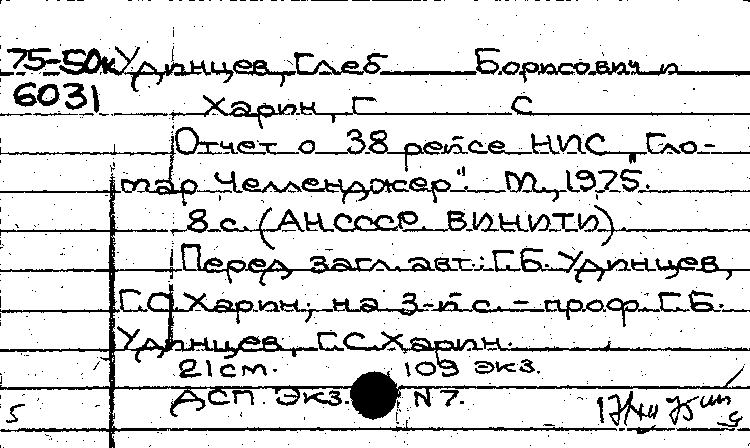 75-50к Удинцев, Глеб Борисович и
6031 Харин, Г С
Отчет о 38 рейсе НИС "Гло-
мар Челленджер". М., 1975.
8 с. (АН СССР. ВИНИТИ).
Перед загл. авт.: Г.Б. Удинцев,
Г.С. Харин; на 3-й с. - проф Г.Б.
Удинцев, Г.С. Харин.
21 см. 109 экз.
ДСП. Экз. N 7.
5